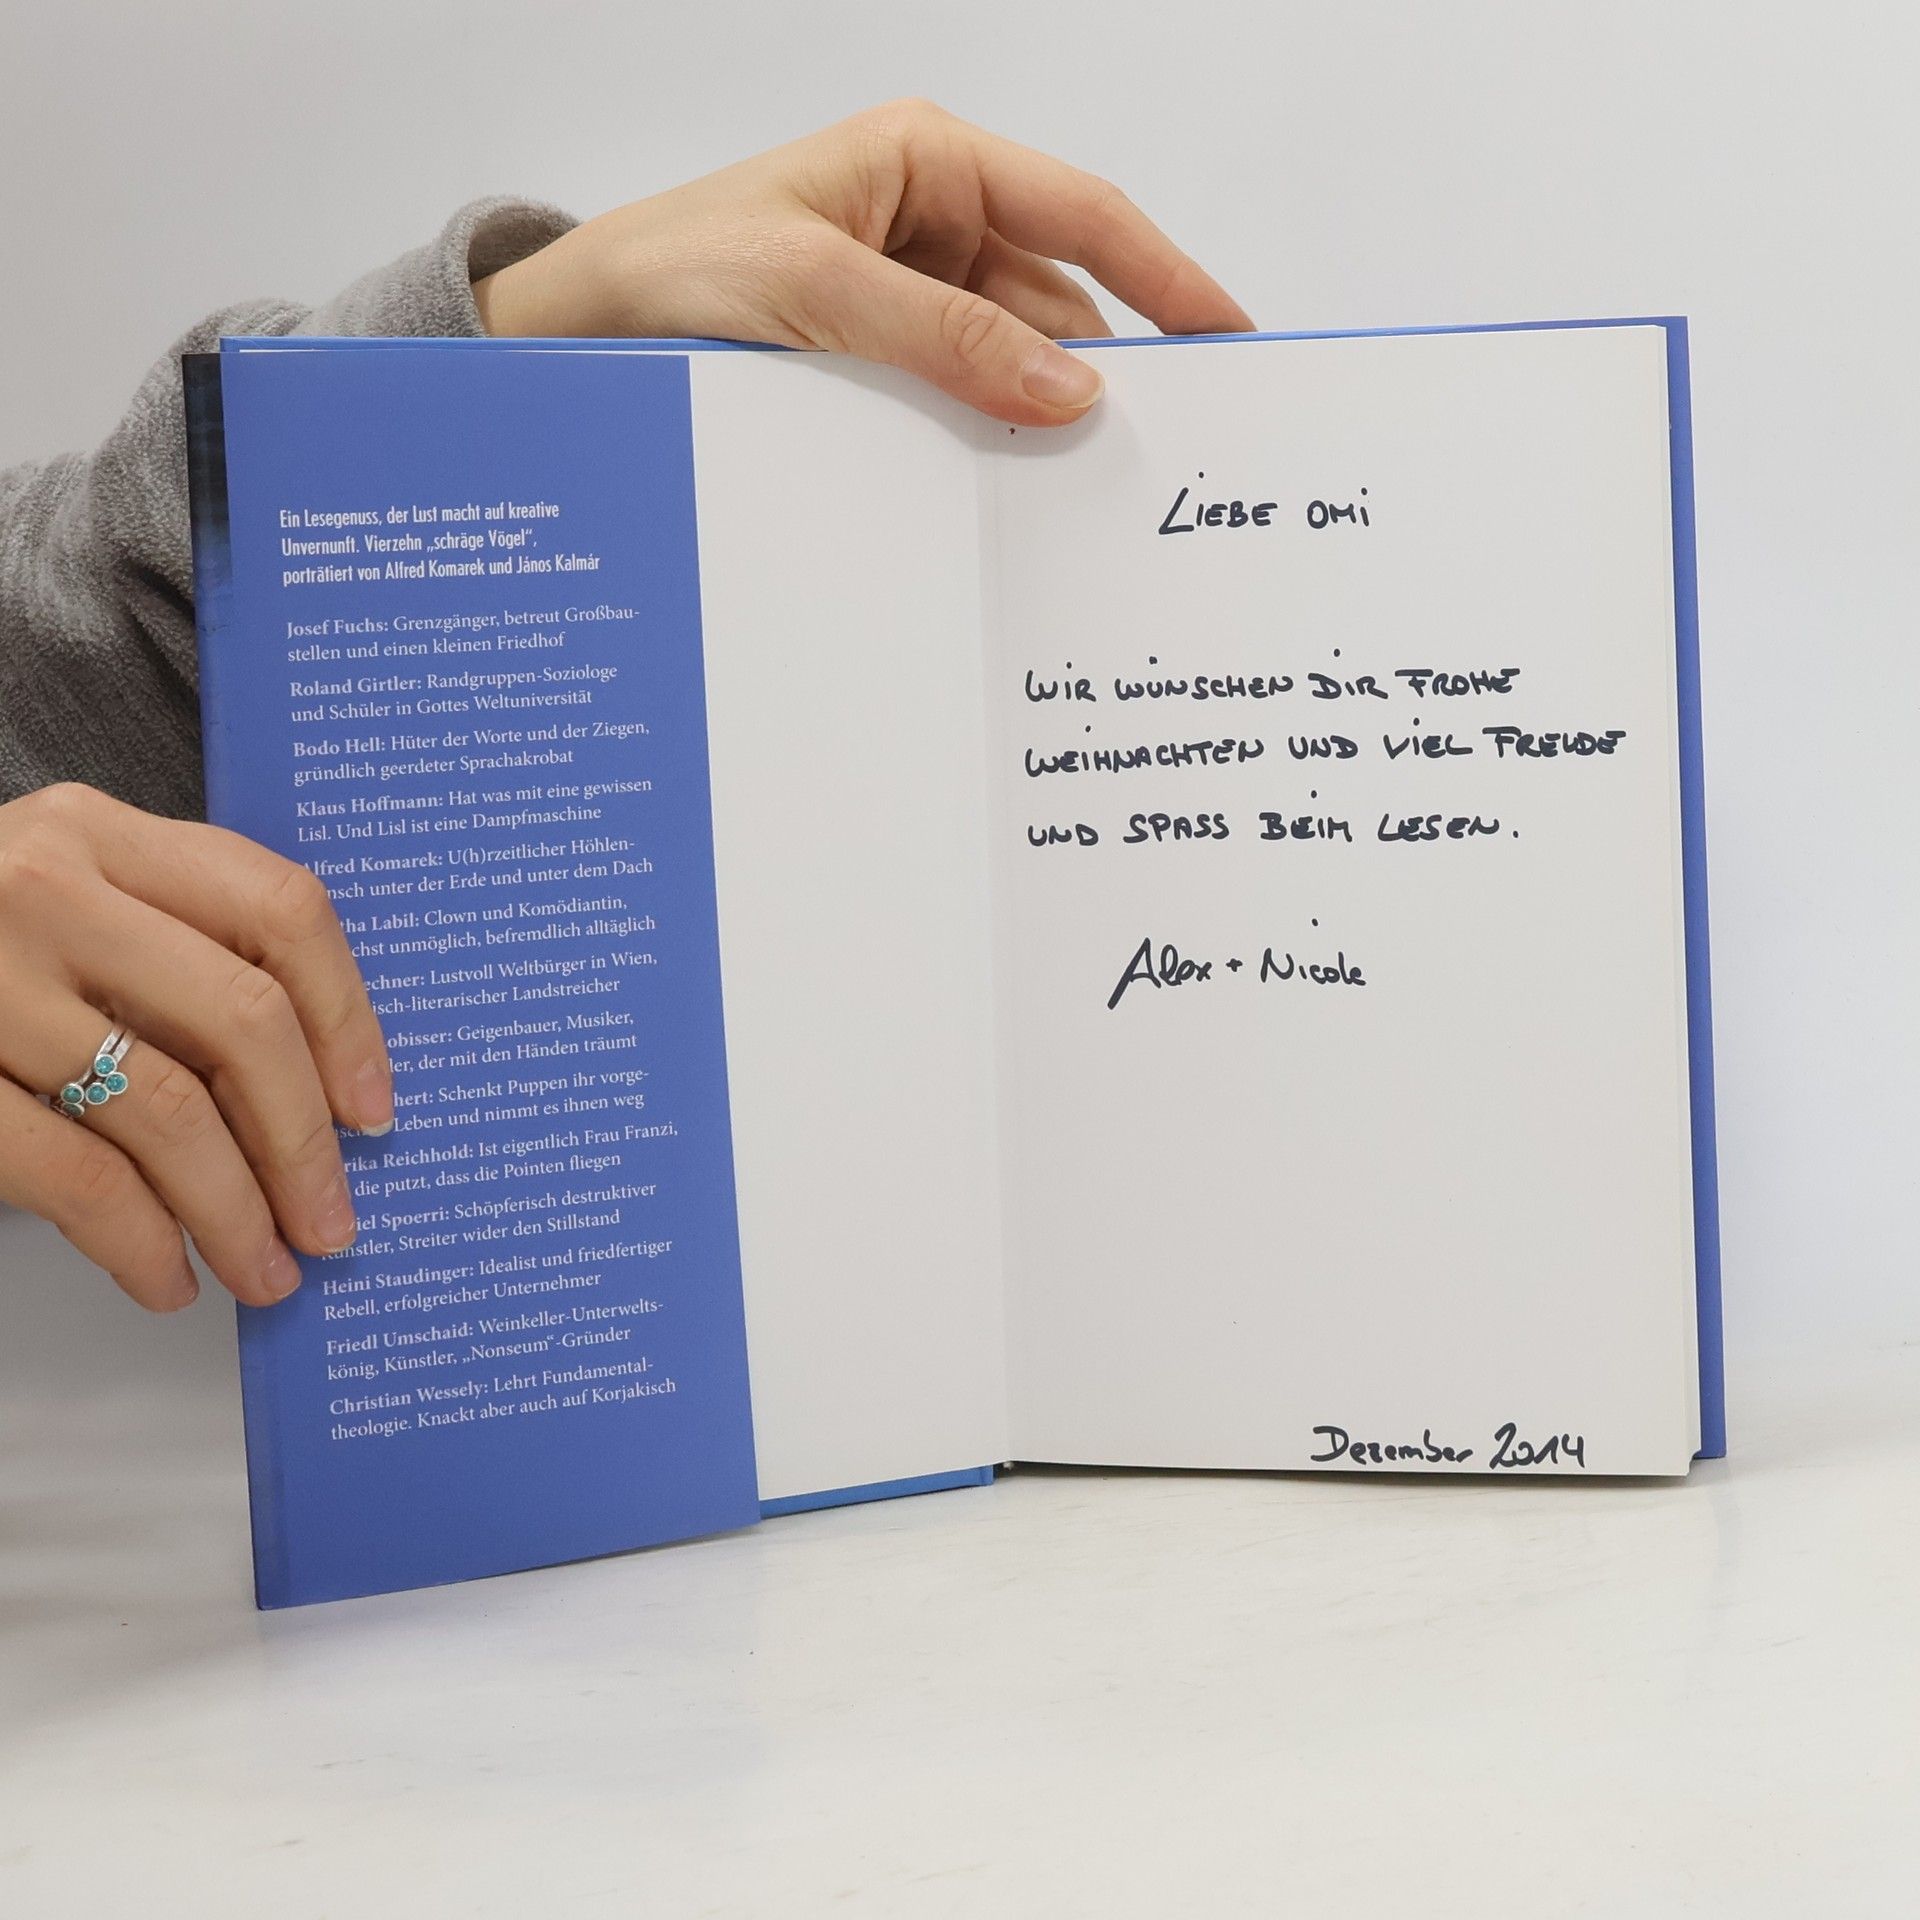 Ein Lesegenuss, der Lust macht auf kreative
Unvernunft. Vierzehn „schräge Vögel“,
porträtiert von Alfred Komarek und János Kalmár
Josef Fuchs: Grenzgänger, betreut Großbau-
stellen und einen kleinen Friedhof
Roland Girtler: Randgruppen-Soziologe
und Schüler in Gottes Weltuniversität
Bodo Hell: Hüter der Worte und der Ziegen,
gründlich geerdeter Sprachakrobat
Klaus Hoffmann: Hat was mit eine gewissen
Lisl. Und Lisl ist eine Dampfmaschine
Alfred Komarek: U(h)rzeitlicher Höhlen-
nsch unter der Erde und unter dem Dach
tha Labil: Clown und Komödiantin,
chst unmöglich, befremdlich alltäglich
echner: Lustvoll Weltbürger in Wien,
isch-literarischer Landstreicher
obisser: Geigenbauer, Musiker,
ler, der mit den Händen träumt
hert: Schenkt Puppen ihr vorge-
Leben und nimmt es ihnen weg
rika Reichhold: Ist eigentlich Frau Franzi,
die putzt, dass die Pointen fliegen
iel Spoerri: Schöpferisch destruktiver
Künstler, Streiter wider den Stillstand
Heini Staudinger: Idealist und friedfertiger
Rebell, erfolgreicher Unternehmer
Friedl Umschaid: Weinkeller-Unterwelts-
könig, Künstler, „Nonseum“-Gründer
Christian Wessely: Lehrt Fundamental-
theologie. Knackt aber auch auf Korjakisch
LiEBE OMi
WiR WÜNSCHEN DiR FROHE
WEiHNACHTEN UND ViEL FREUDE
UND SPASS BEiM LESEN.
Alex + Nicole
Dezember 2014